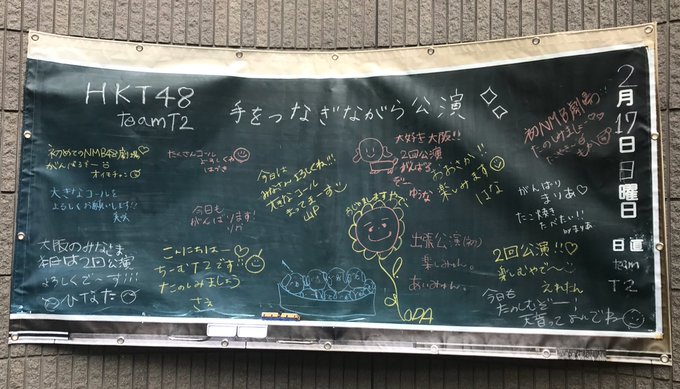 HKT48
teamT2
手をつなぎながら公演
2月17日日曜日
日直
team
T2
初めてのNMB48劇場
がんばるぞーう
オイモチャン
大きなコールを
よろしくお願いします!!
たくさんコール
よろしくね
はづき
今日も
がんばります!
りか
大阪のみなさま
本日は2回公演
よろしくどーーーぞ!!!
ひなた
こんにちはー♡
ちーむT2です!!
たのしみましょう
さえ
今日は
みなさんよろしくね!!!
大きなコール
まってまーす
大好き大阪!!
2回公演
がんばる
ぞー
ゆうな
おおさか!!
楽しみます
はな
初NMB劇場
たのしみました
出張公演(初)
楽しみゃん。
あいみゃん。
がんばり
まりあ♡
たこ焼き
たべたい!!
byまりあ
2回公演!!♡
楽しむやでー
えれたん
今日も
たのしむぞー!
大音ってよいでね